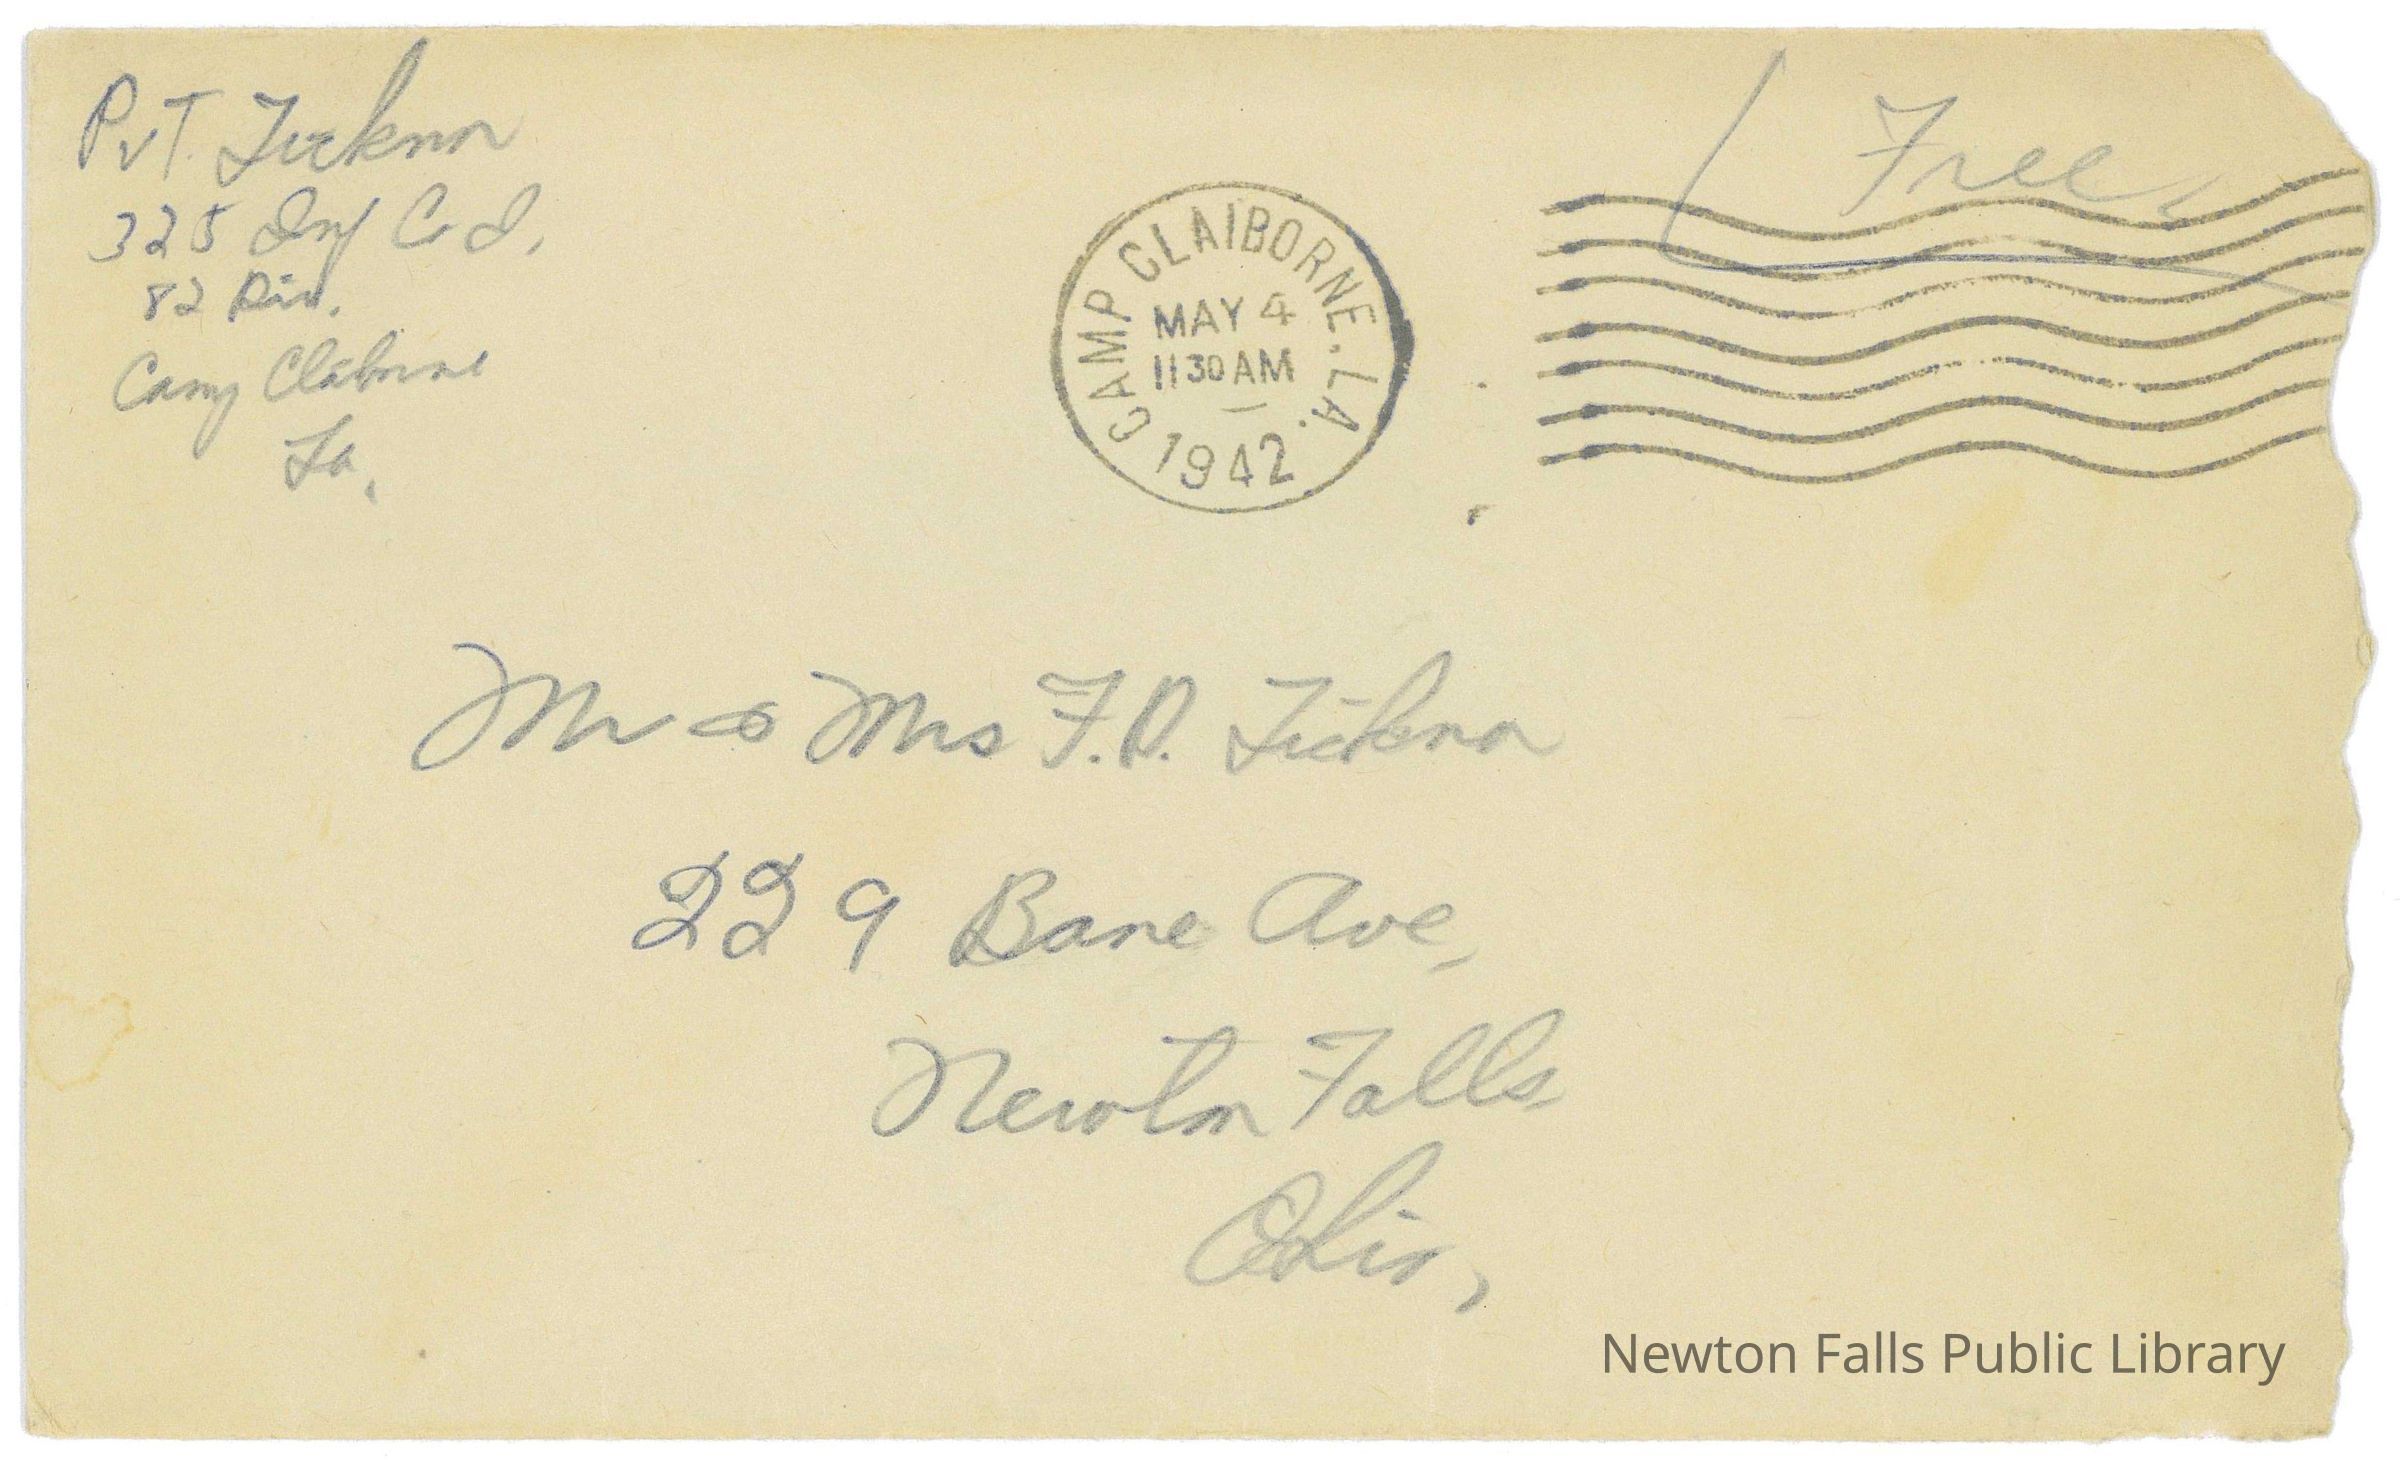 Pvt. Ticknor
325 Inf Co I.
82 Div.
Camp Claiborne
La.
Free
CAMP CLAIBORNE. LA.
MAY 4
11 30 AM
1942
Mr & Mrs F.D. Ticknor
229 Bane Ave,
Newton Falls
Ohio,
Newton Falls Public Library